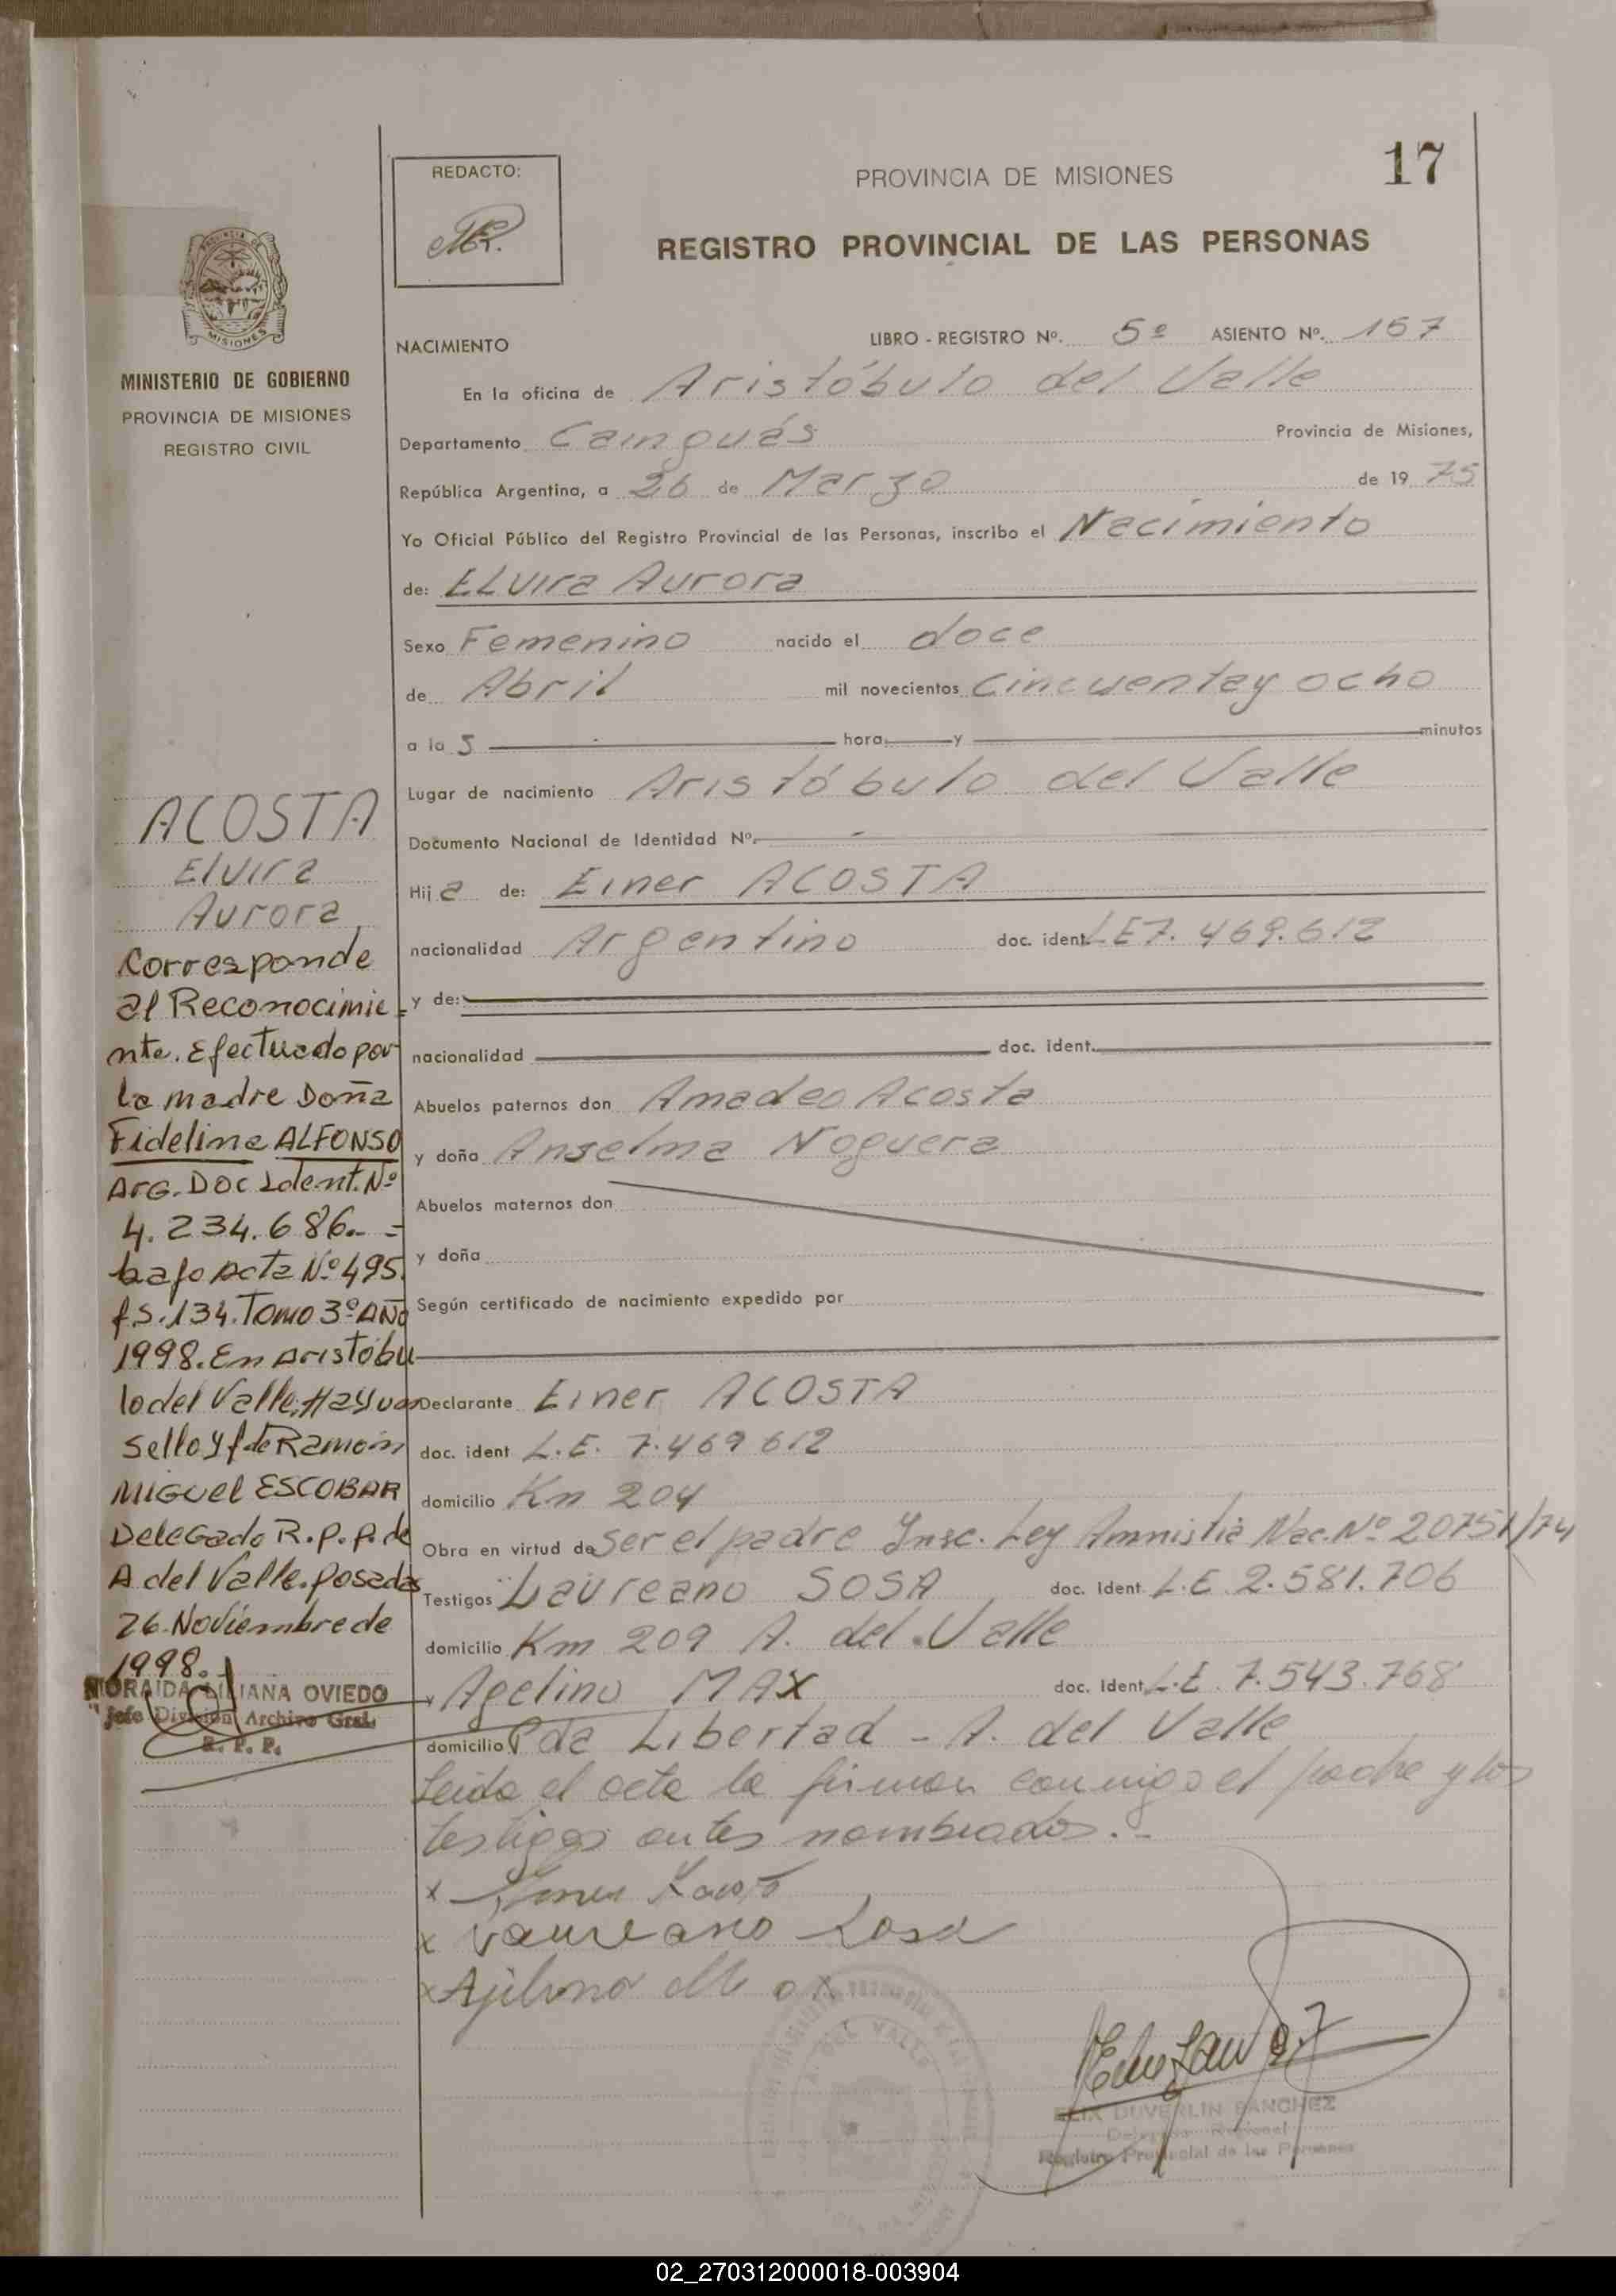 17
REDACTO:
PROVINCIA DE MISIONES
REGISTRO PROVINCIAL DE LAS PERSONAS
PROVINCIA DE
MISIONES
MINISTERIO DE GOBIERNO
PROVINCIA DE MISIONES
REGISTRO CIVIL
NACIMIENTO
LIBRO - REGISTRO Nº. 5º ASIENTO Nº. 157
En la oficina de Aristóbulo del Valle
Departamento Cainguás Provincia de Misiones,
República Argentina, a 26 de Marzo de 19 75
Yo Oficial Público del Registro Provincial de las Personas, inscribo el Nacimiento
de: ELVIra Aurora
Sexo Femenino nacido el doce
de Abril mil novecientos Cincuentay ocho
a la 5 hora y minutos
Lugar de nacimiento Aristóbulo del Valle
Documento Nacional de Identidad Nº.
Hija de: Einer ACOSTA
nacionalidad Argentino doc. ident. LE 7.469.612
y de:
nacionalidad doc. ident.
Abuelos paternos don Amadeo Acosta
y doña Anselma Noguera
Abuelos maternos don
y doña
Según certificado de nacimiento expedido por
Declarante Einer ACOSTA
doc. ident L.E. 7.469612
domicilio Km 204
Obra en virtud de ser el padre Insc. Ley Amnistia Nac. Nº 20751/74
Testigos Laureano SOSA doc. ident L.E 2.581.706
domicilio Km 209 A. del Valle
y Agelino MAX doc. ident L.E. 7.543.768
domicilio Pda Libertad - A. del Valle
Leida el acta la firman conmigo el padre y los
testigos antes nombrados.-
x
x Laureano Sosa
x
ACOSTA
Elvira
Aurora
Corresponde
al Reconocimie-
nto. Efectuado por
la madre Doña
Fidelina ALFONSO
Arg. Doc Ident. Nº
4.234.686.- =
bajo Acta Nº 495.
fs. 134. Tomo 3º Año
1998. En Aristóbu
lo del Valle. Hay un
sello y f de Ramón
Miguel ESCOBAR
Delegado R.P.P. de
A del Valle. Posadas
26 Noviembre de
1998.
MORAIDA LILIANA OVIEDO
Jefe División Archivo Gral.
R. P. P.
FELIX DUVERLIN SANCHEZ
Delegado Regional
Registro Provincial de las Personas
02_270312000018-003904